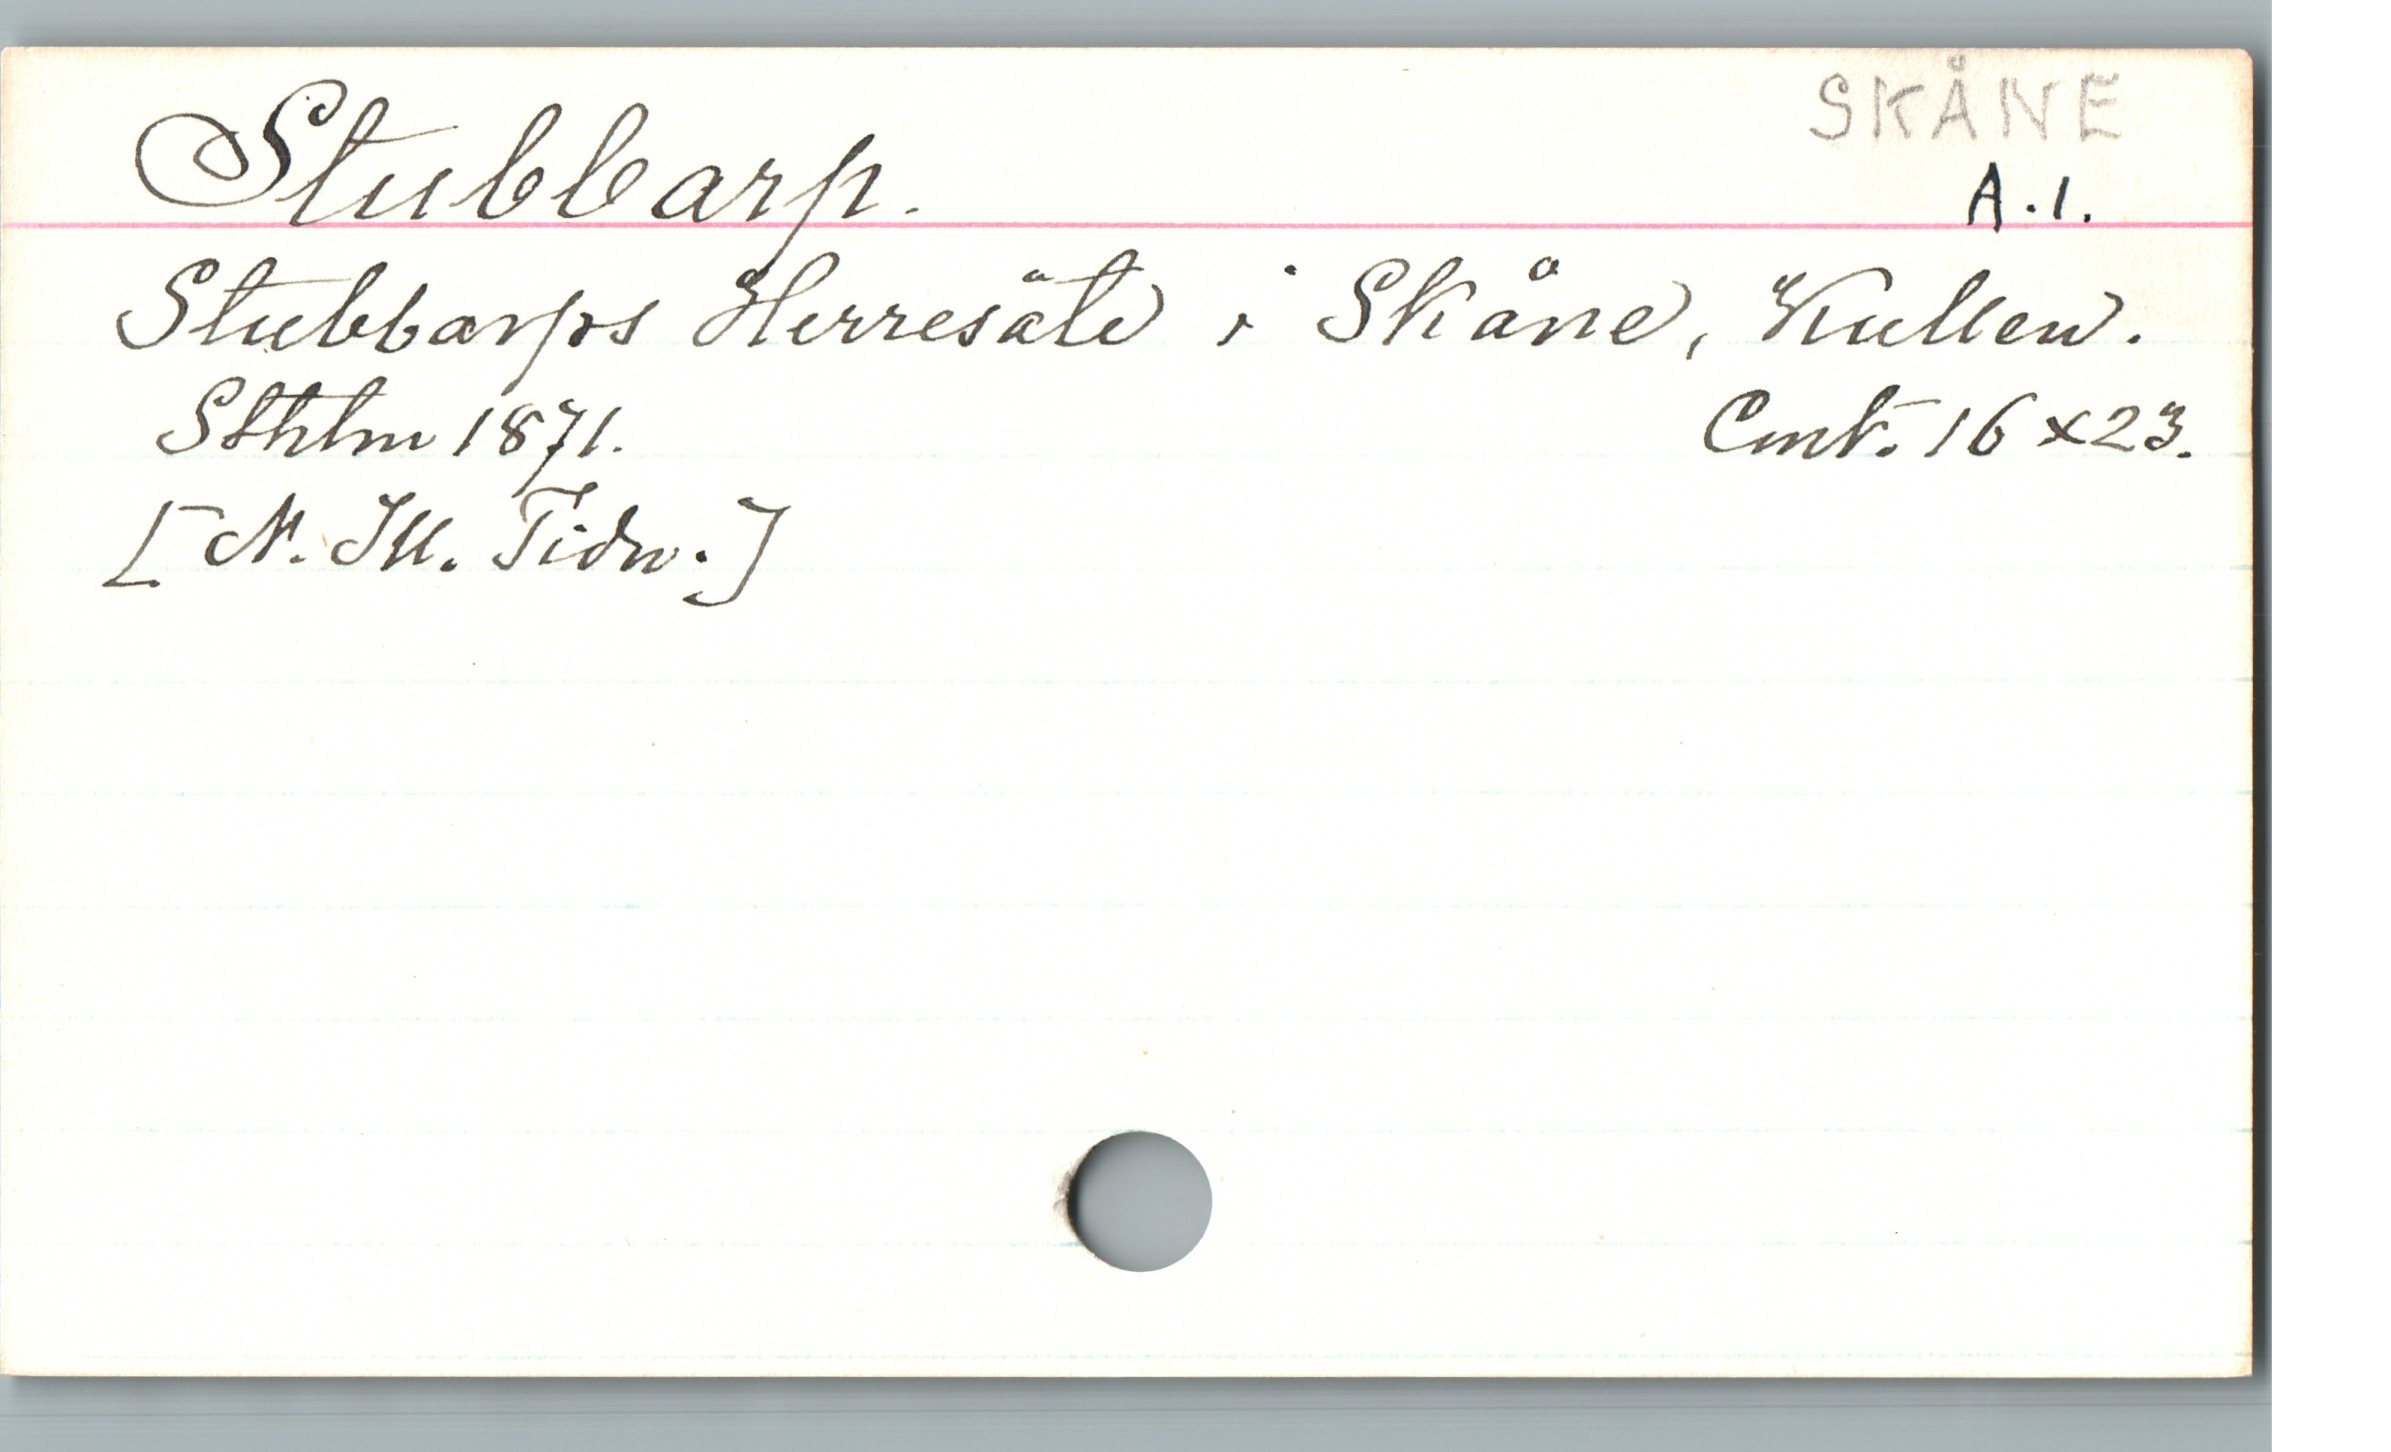 SKÅNE
Stubbarp. A.1.
Stubbarps Herresäte i Skåne, Kullen.
Sthlm 1871. Cmt. 16 x 23.
[N. Ill. Tidn.]